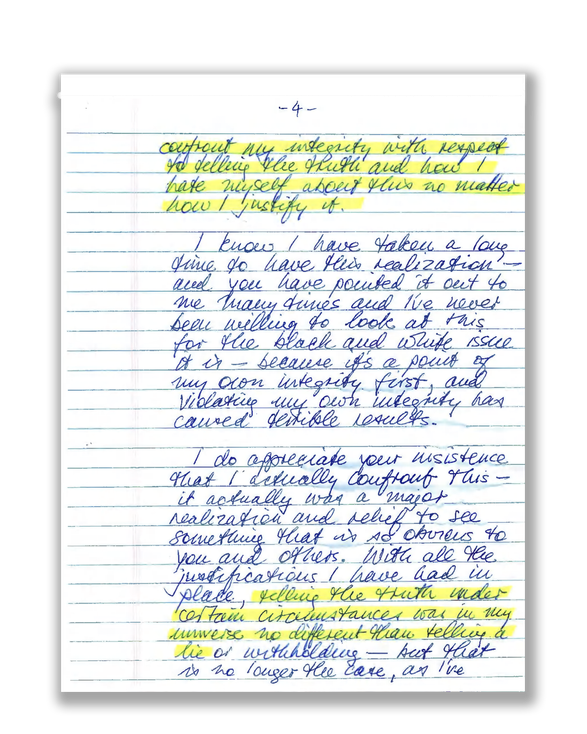 -4-
confront my integrity with respect
to telling the truth and how I
hate myself about this no matter
how I justify it.
I know I have taken a long
time to have this realization —
and you have pointed it out to
me many times and I've never
been willing to look at this
for the black and white issue
it is — because it's a point of
my own integrity first, and
violating my own integrity has
caused terrible results.
I do appreciate your insistence
that I actually confront this —
it actually was a major
realization and relief to see
something that is so obvious to
you and others. With all the
justifications I have had in
place, telling the truth under
certain circumstances was in my
universe no different than telling a
lie or withholding — but that
is no longer the case, as I've